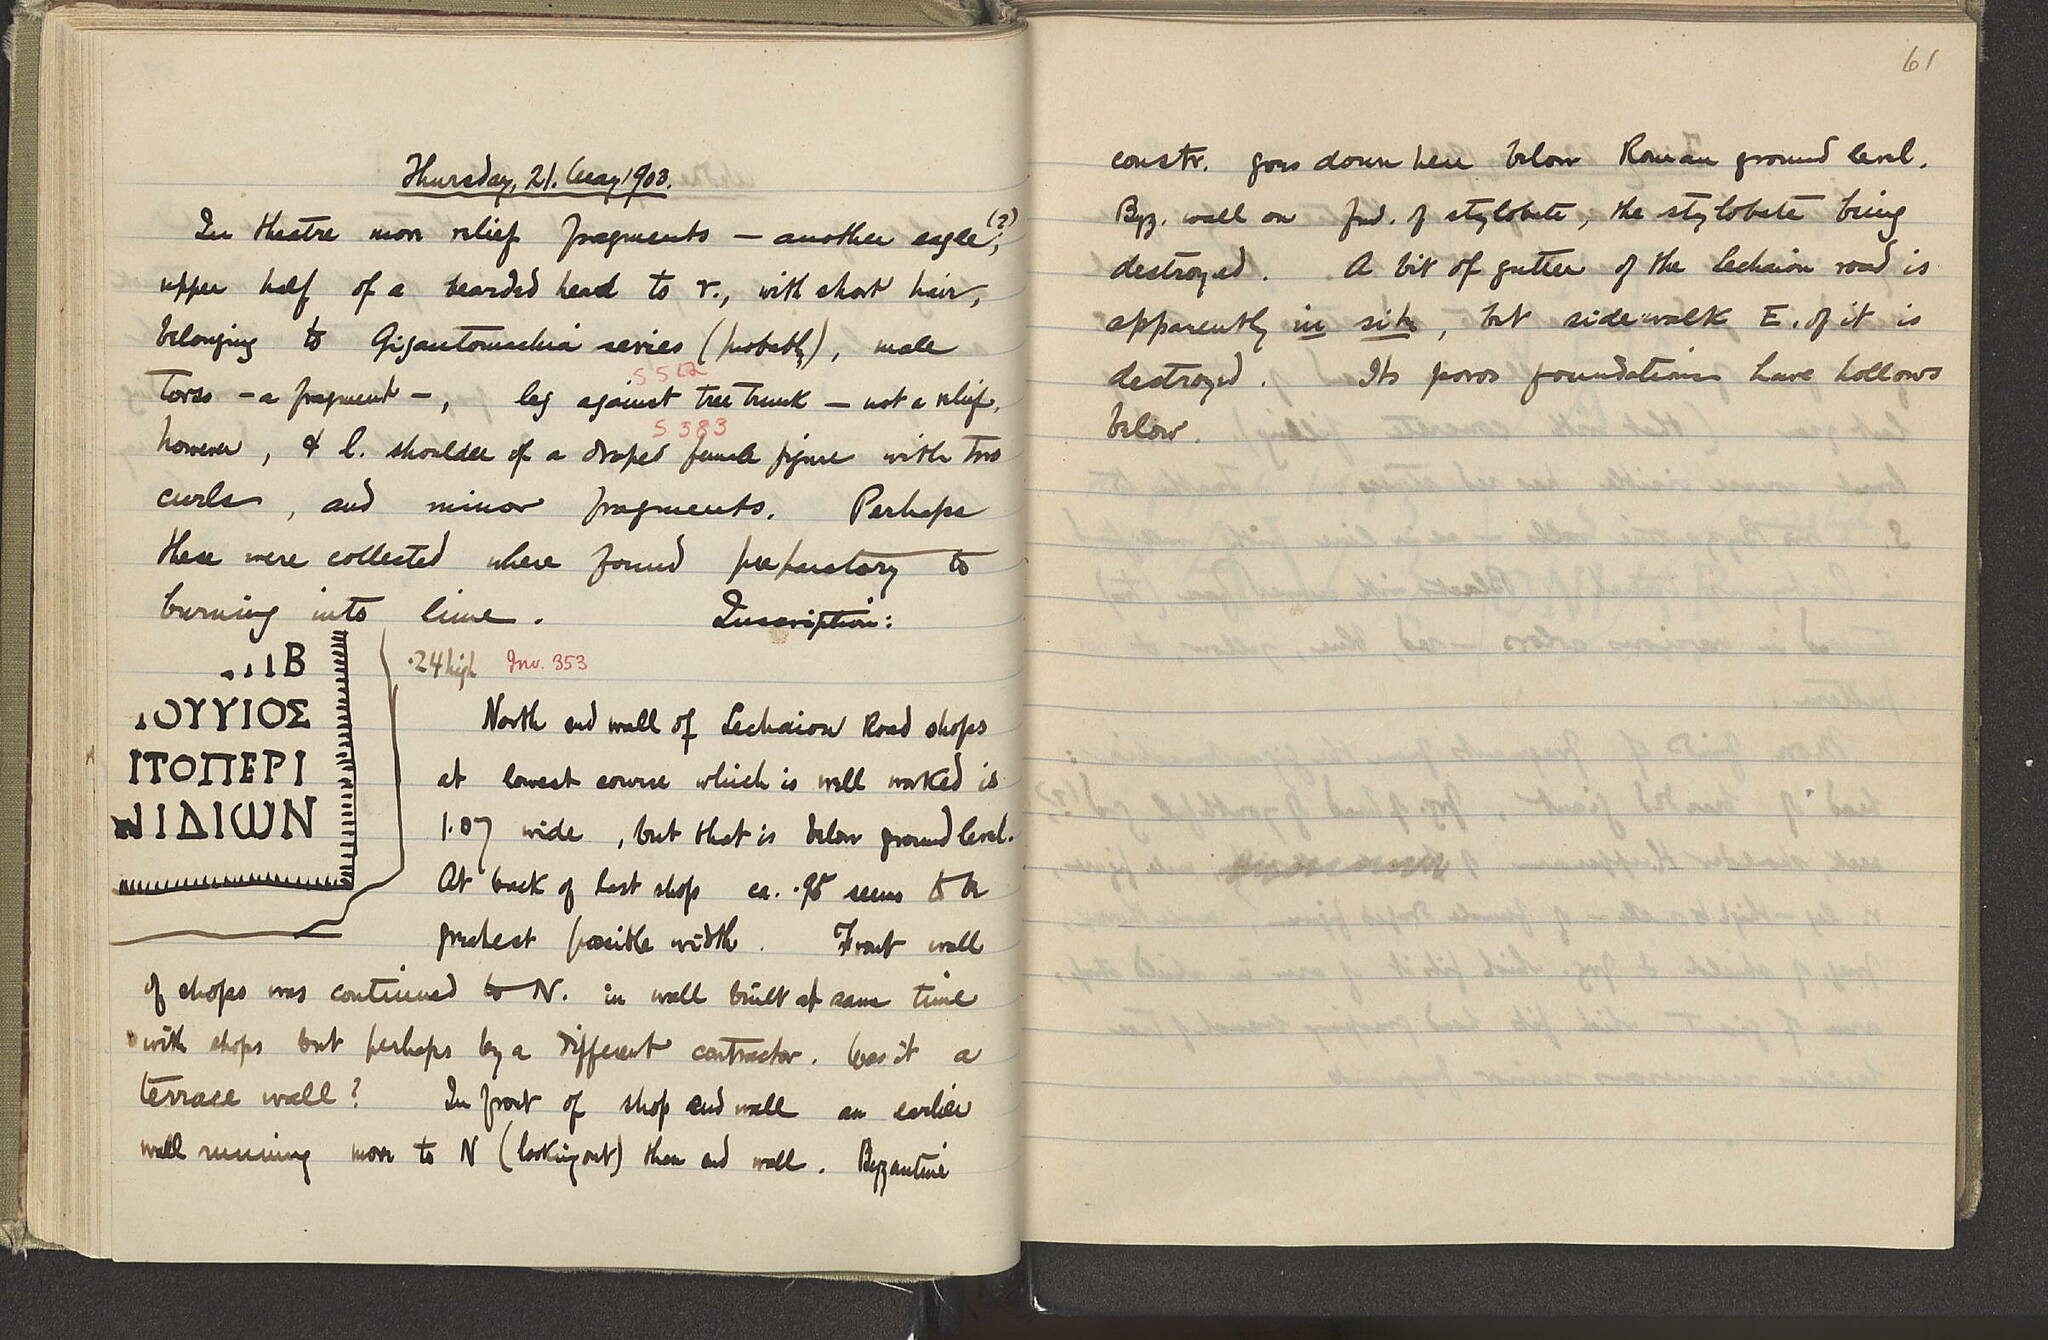 Thursday, 21. May 1903.
In theatre more relief fragments – another eagle (?),
upper half of a bearded head to r., with short hair,
belonging to Gigantomachia series (probably), male
S 5512
torso – a fragment –, leg against tree trunk – not a relief,
S 383
however, & l. shoulder of a draped female figure with two
curls, and minor fragments. Perhaps
these were collected where found preparatory to
burning into lime. Inscription:
...ΙΙΒ
.24 high Inv. 353
ΙΟΥΥΙΟΣ
ΙΤΟΠΕΡΙ
ΝΙΔΙΩΝ
North end wall of Lechaion Road shops
at lowest course which is well worked is
1.07 wide, but that is below ground level.
At back of last shop ca. .95 seems to be
greatest possible width. Front wall
of shops was continued to N. in wall built at same time
with shops but perhaps by a different contractor. Was it a
terrace wall? In front of shop end wall an earlier
wall running more to N (looking out) than end wall. Byzantine
61
constr. goes down here below Roman ground level.
Byz. wall on fnd. of stylobate, the stylobate being
destroyed. A bit of gutter of the Lechaion road is
apparently in situ, but sidewalk E. of it is
destroyed. Its poros foundations have hollows
below.